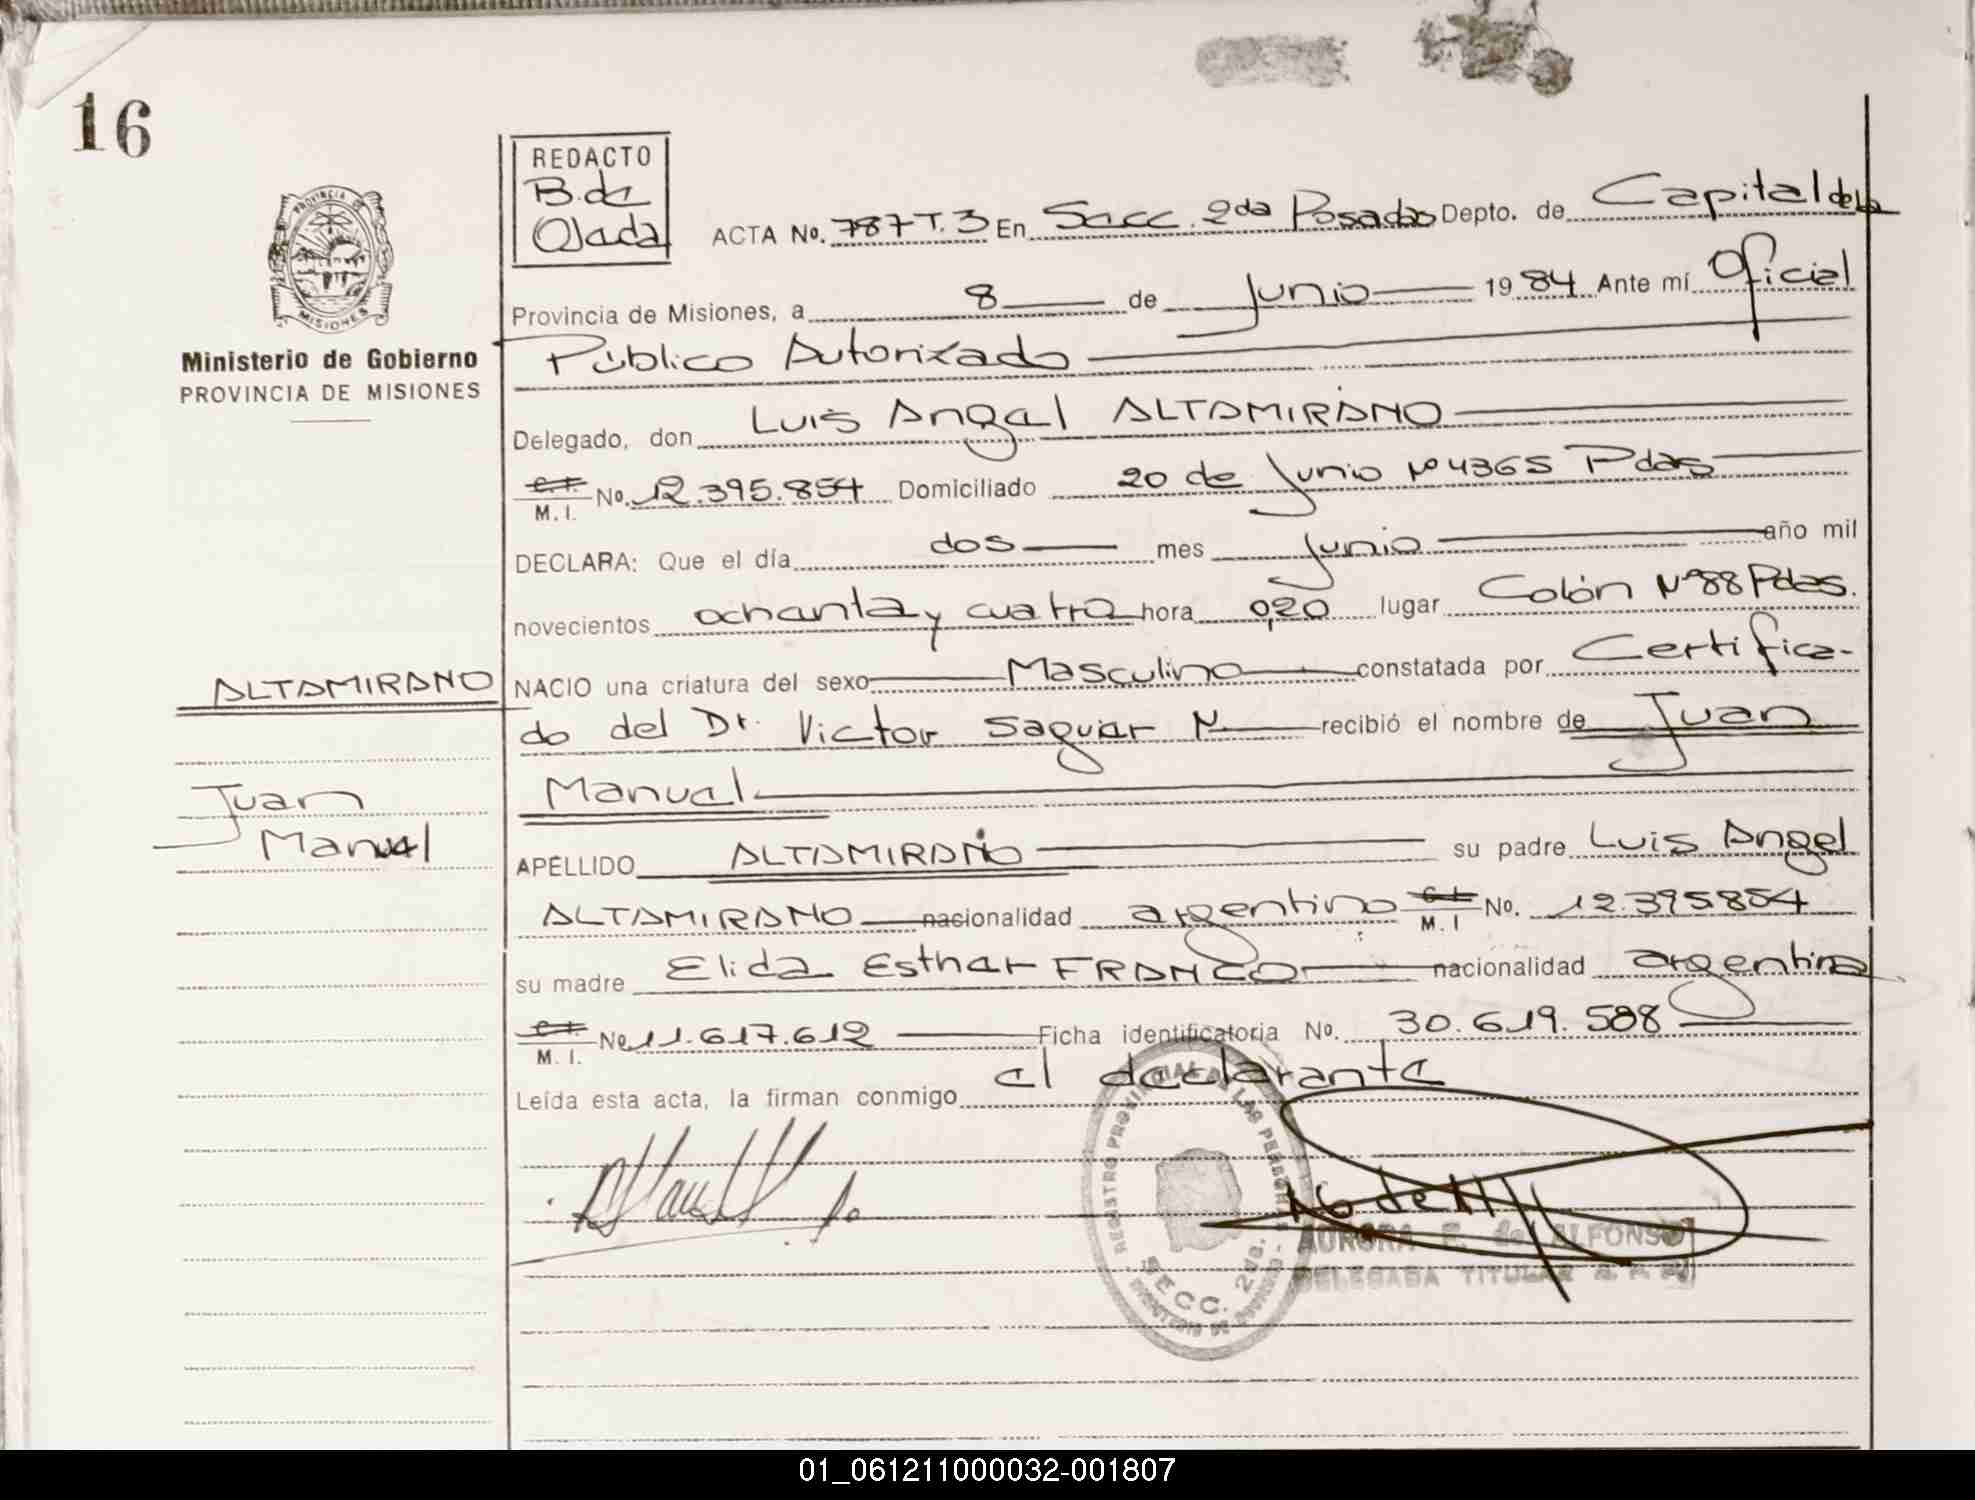 16
PROVINCIA DE
MISIONES
Ministerio de Gobierno
PROVINCIA DE MISIONES
REDACTO
B. de
Ojeda
ACTA No. 787 T. 3 En Secc. 2da Posadas Depto. de Capital de la
Provincia de Misiones, a 8 de Junio 1984 Ante mí Oficial
Público Autorizado
Delegado, don Luis Angel ALTAMIRANO
C.I. No. 12.395.854 Domiciliado 20 de Junio Nº 4365 Pdas
M. I.
DECLARA: Que el día dos mes Junio año mil
novecientos ochenta y cuatro hora 0,20 lugar Colón Nº 88 Pdas.
ALTAMIRANO
NACIO una criatura del sexo Masculino constatada por Certifica-
do del Dr. Victor Saguier N recibió el nombre de Juan
Juan
Manuel
Manuel
APELLIDO ALTAMIRANO su padre Luis Angel
ALTAMIRANO nacionalidad argentino C.I. No. 12.395854
M. I
su madre Elida Esther FRANCO nacionalidad argentina
C.I. No 11.617.612 Ficha identificatoria No. 30.619.588
M. I.
Leída esta acta, la firman conmigo el declarante
REGISTRO PROVINCIAL DE LAS PERSONAS
SECC. 2da.
AURORA F. de ALFONSO
DELEGADA TITULAR R. P. P.
01_061211000032-001807